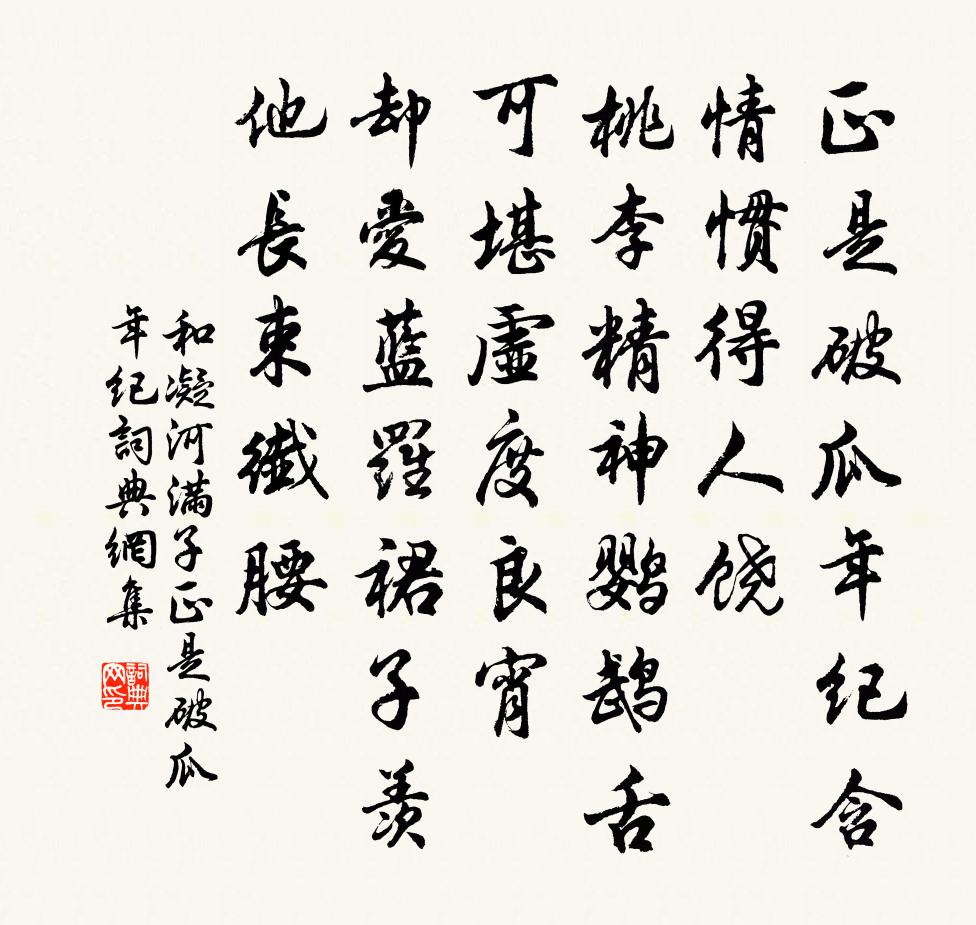 正是破瓜年纪含
情惯得人饶
桃李精神鹦鹉舌
可堪虚度良宵
却愛藍羅裙子羨
他長束纖腰
和凝河满子正是破瓜
年纪詞典網集
詞典網印